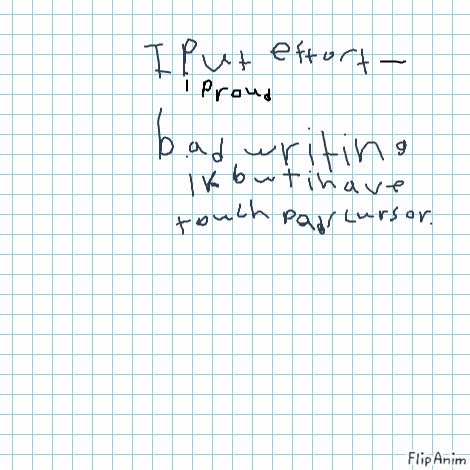 I Put effort —
i proud
bad writing
ik but i have
touch pad cursor.
FlipAnim